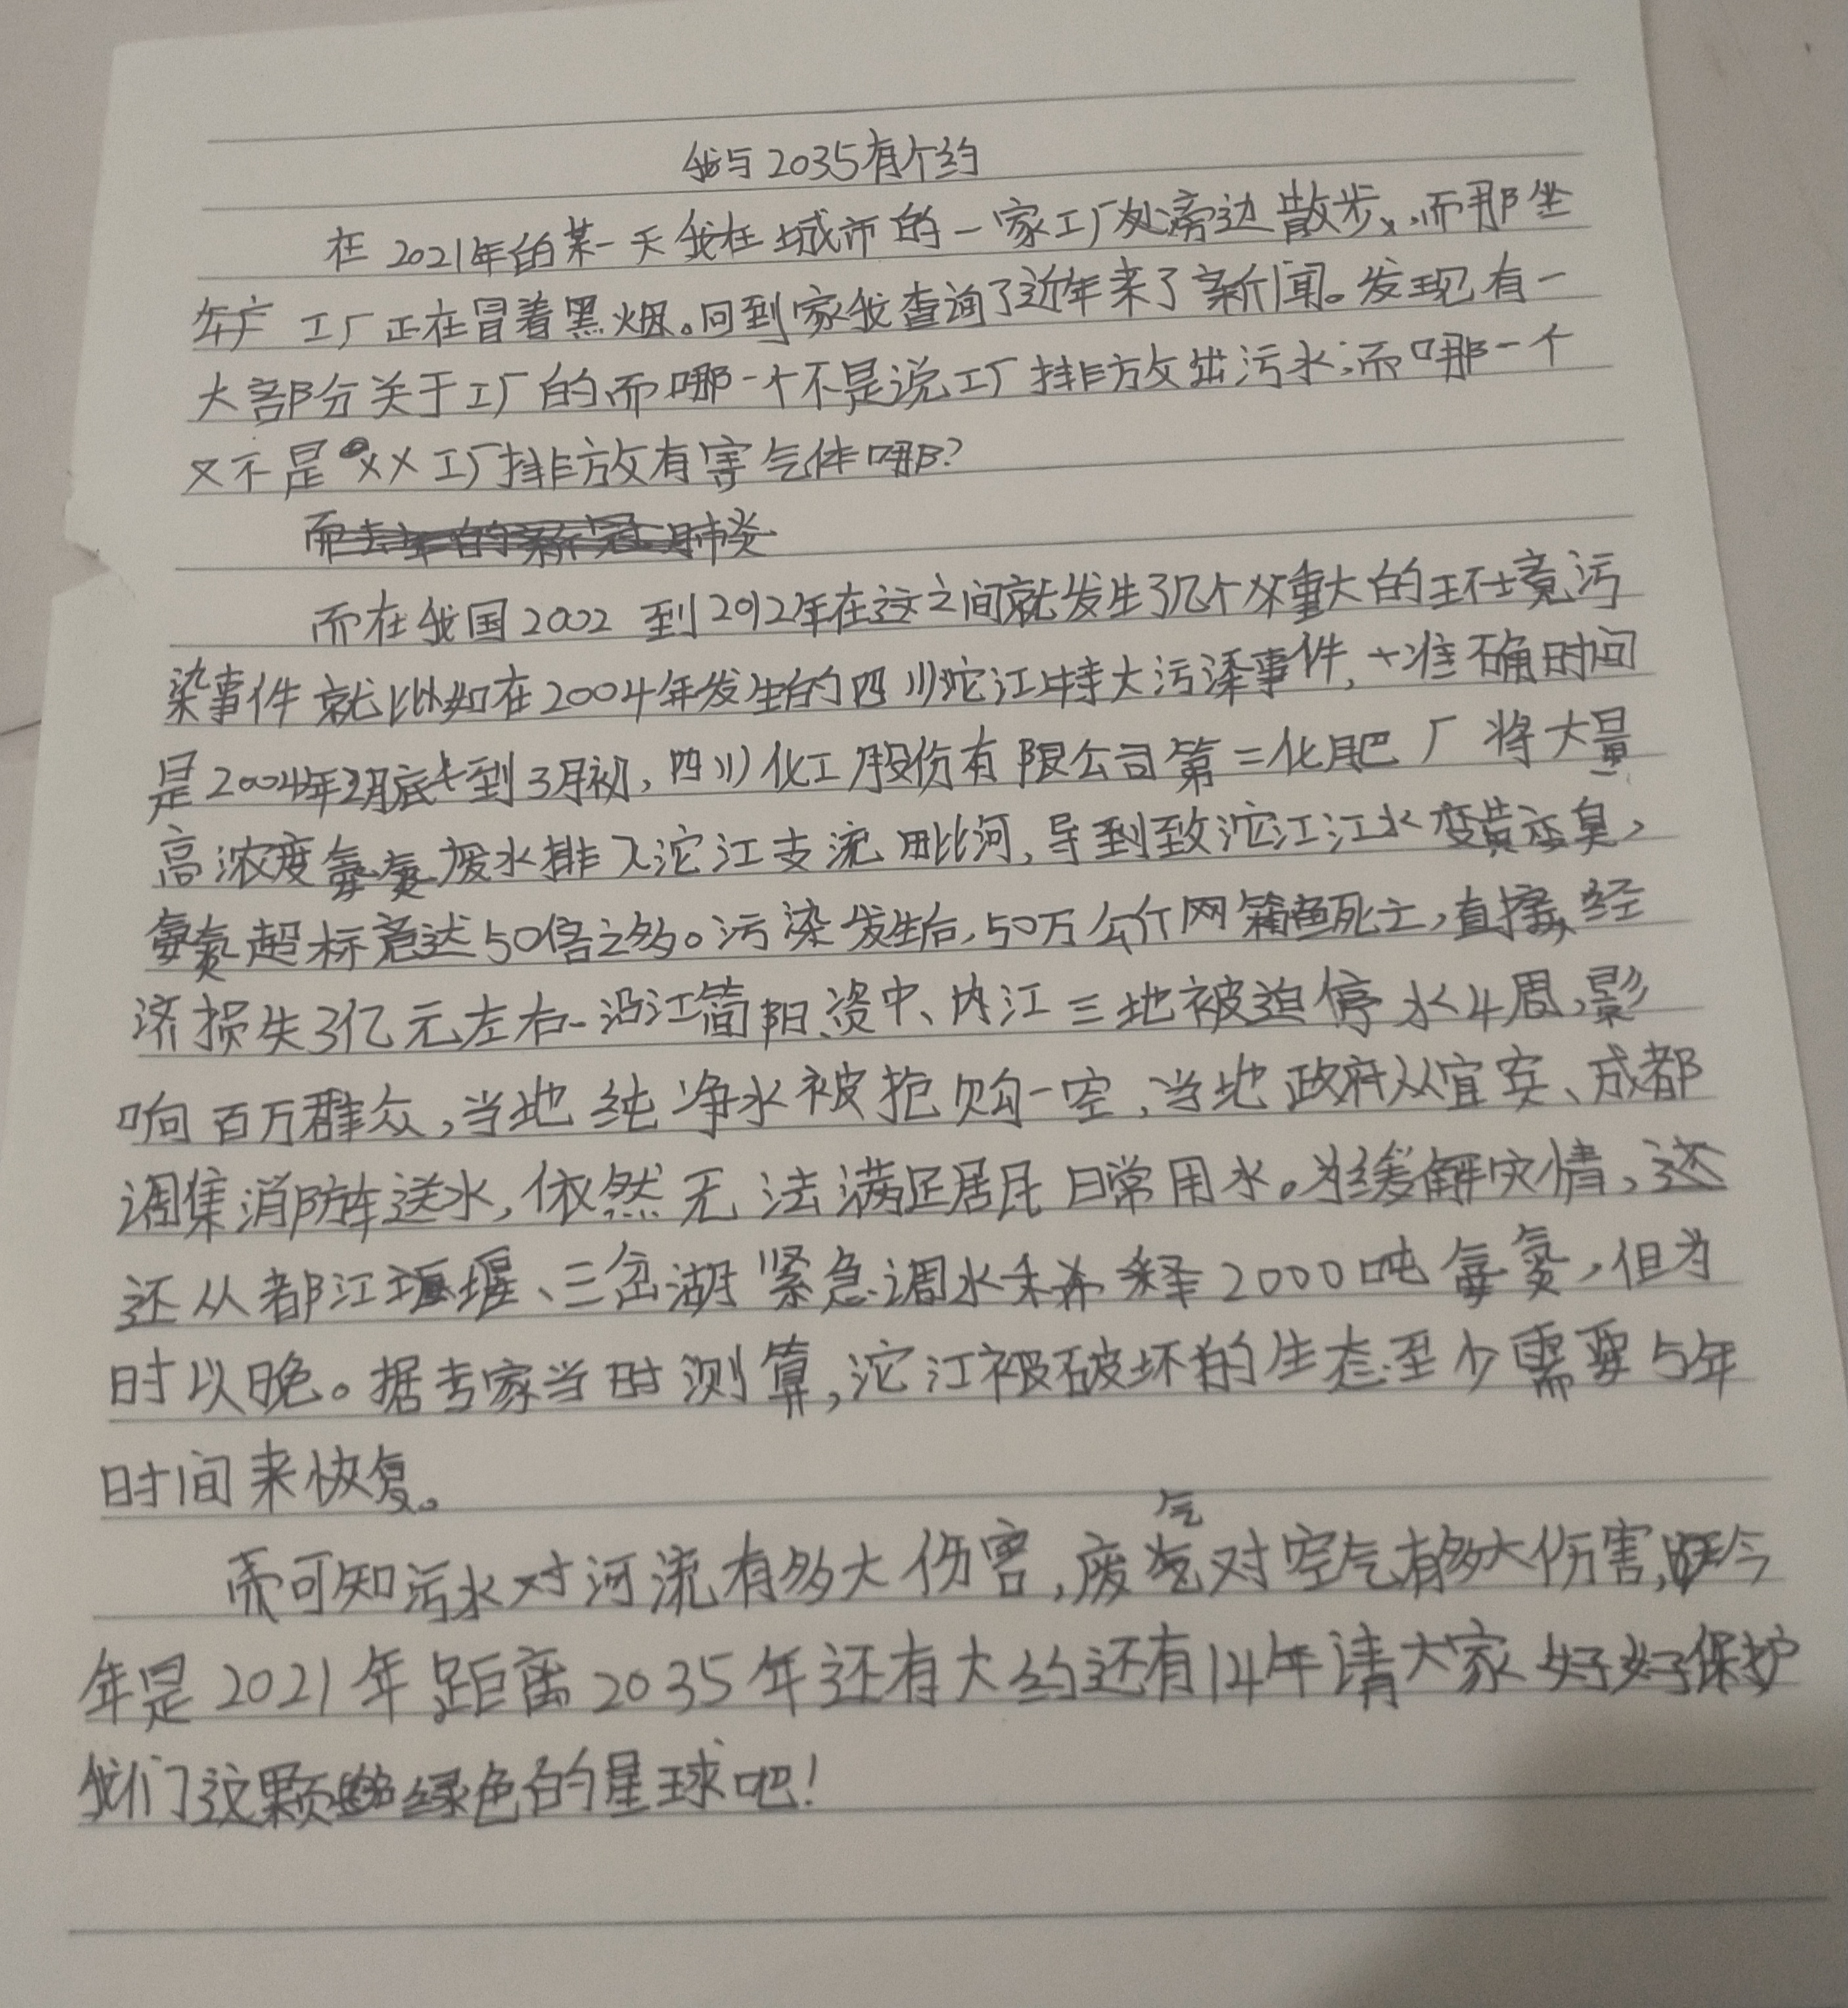 我与2035有个约
在2021年的某一天我在城市的一家工厂处旁边散步，而那坐
工厂正在冒着黑烟。回到家我查询了近年来了新闻。发现有一
大部分关于工厂的而哪一个不是说工厂排放出污水；而哪一个
又不是XX工厂排放有害气体哪？
而去年的新冠肺炎
而在我国2002到2012年在这之间就发生了几个重大的环境污
染事件就比如在2004年发生的四川沱江特大污染事件，准确时间
是2004年2月底到3月初，四川化工股份有限公司第二化肥厂将大量
高浓度氨氮废水排入沱江支流毗河，导到致沱江江水变黄变臭，
氨氮超标竟达50倍之多。污染发生后，50万公斤网箱鱼死亡，直接经
济损失3亿元左右沿江简阳、资中、内江三地被迫停水4周，影
响百万群众，当地纯净水被抢购一空，当地政府从宜宾、成都
调集消防车送水，依然无法满足居民日常用水。为缓解灾情，还
还从都江堰、三岔湖紧急调水稀释2000吨氨氮，但为
时以晚。据专家当时测算，沱江被破坏的生态至少需要5年
时间来恢复。
而可知污水对河流有多大伤害，废气对空气有多大伤害，今
年是2021年距离2035年还有大约还有14年请大家好好保护
我们这颗绿色的星球吧！